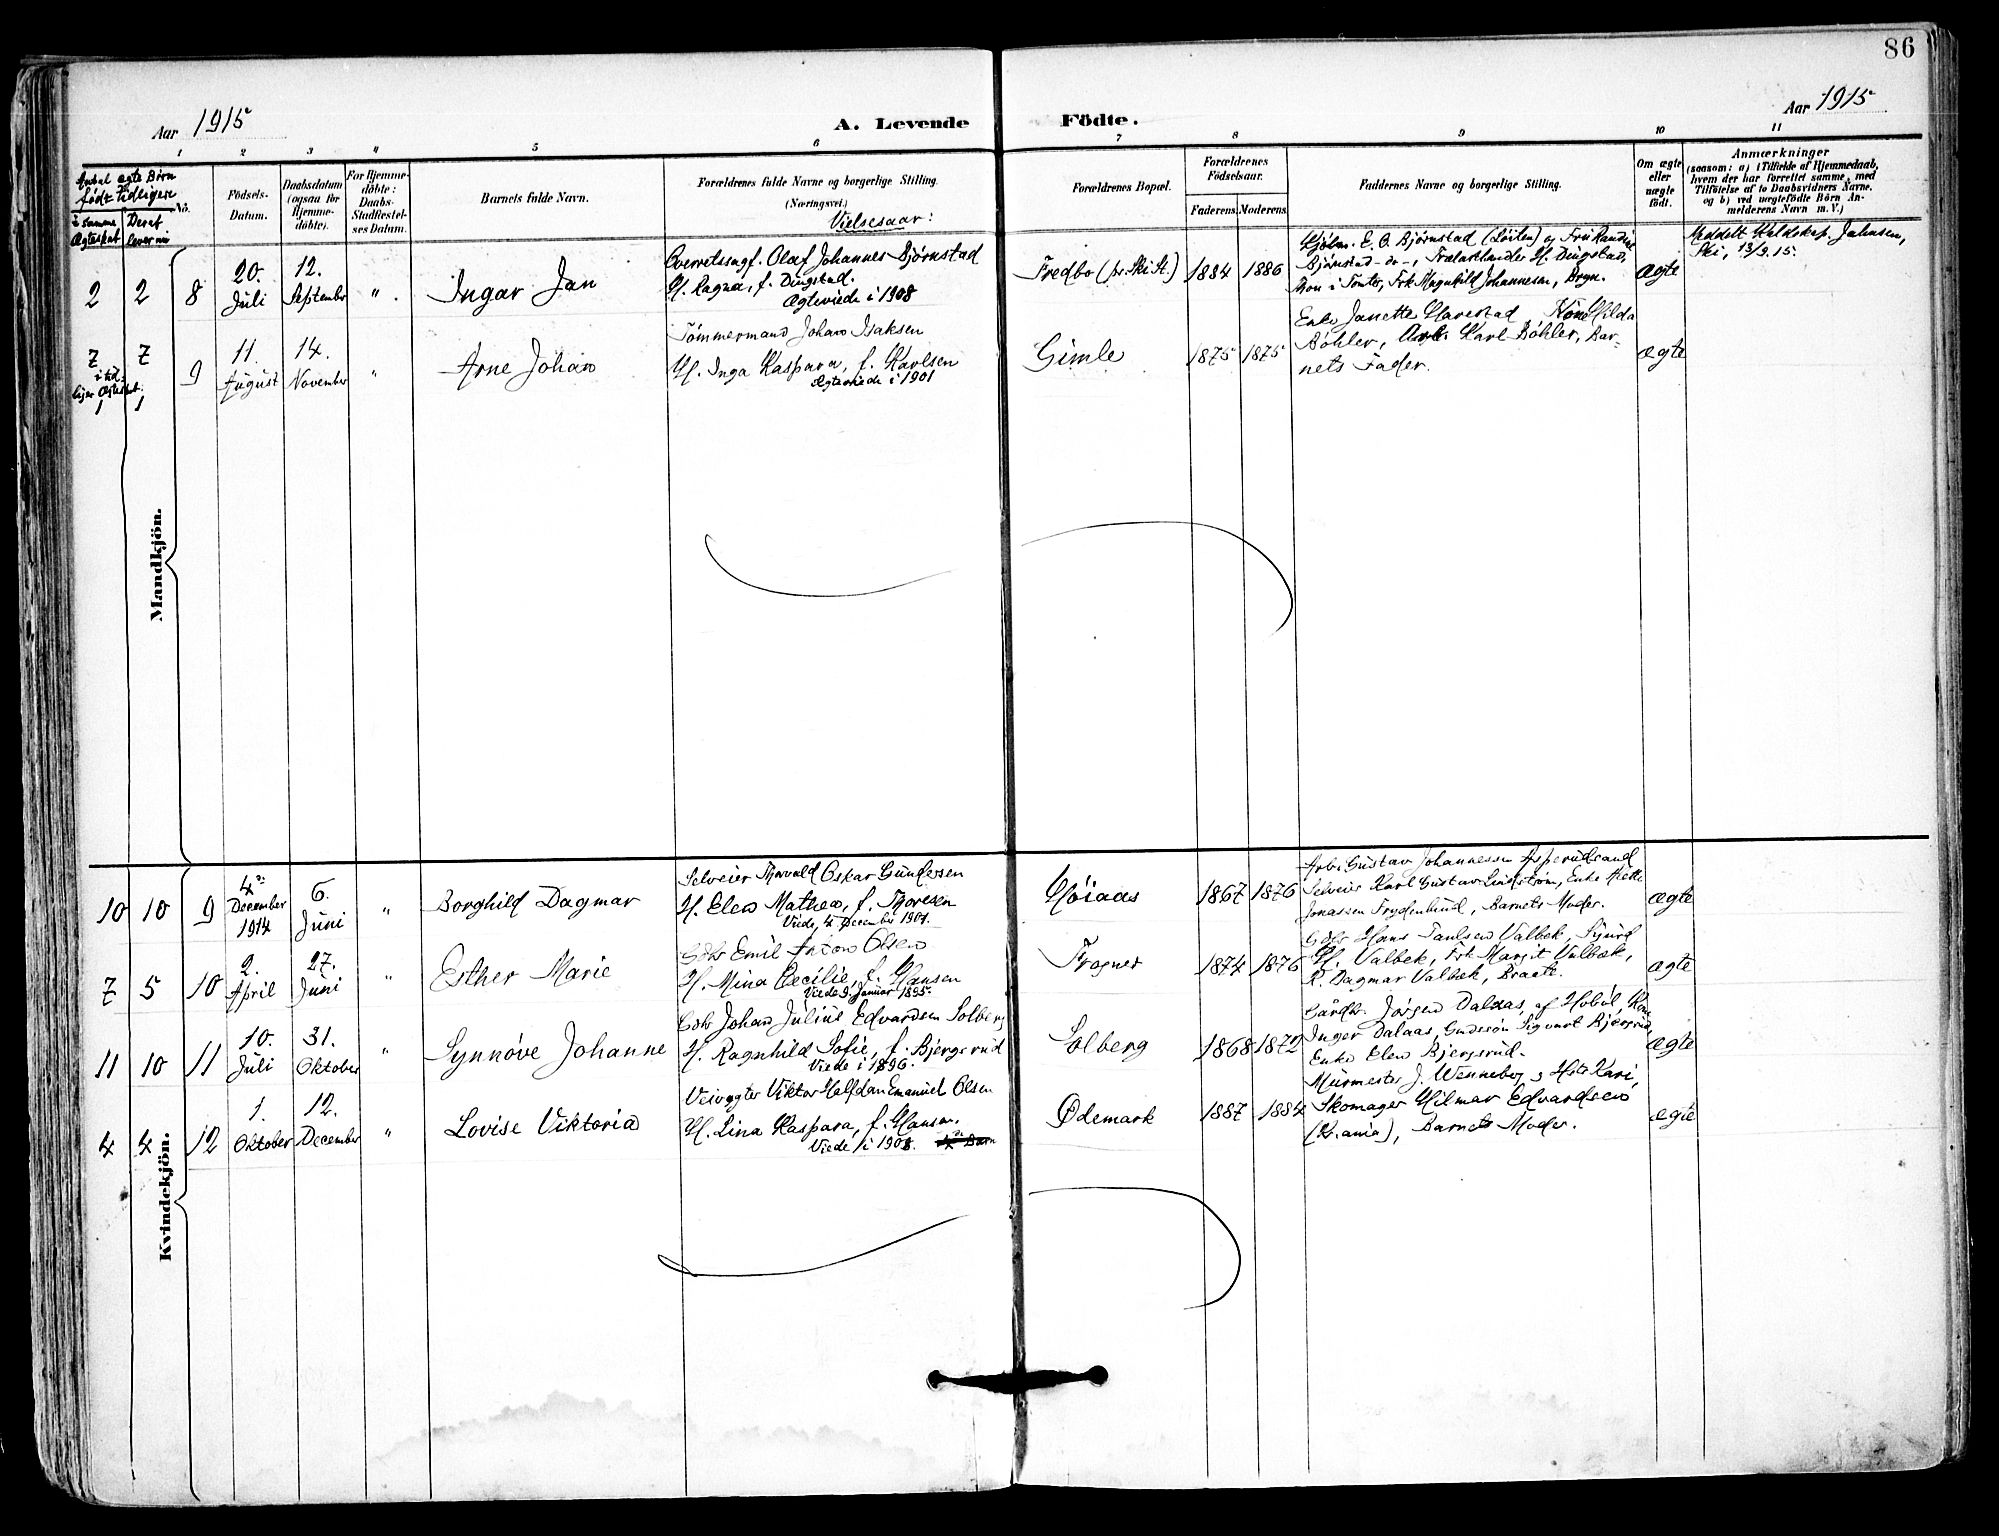 86
Aar 1915
A. Levende Födte.
Aar 1915
1 2 3 4 5 6 7 8 9 10 11
Antal ægte Børn født tidligere
i samme Ægteskab
Deraf lever nu
No.
Födsels-Datum.
Daabsdatum (ogsaa for Hjemme-döbte).
For Hjemme-döbte: Daabs-Stadfæstel-ses Datum.
Barnets fulde Navn.
Forældrenes fulde Navne og borgerlige Stilling.
(Næringsvei.)
Vielsesaar:
Forældrenes Bopæl.
Forældrenes Födselsaar.
Faderens. Moderens.
Faddernes Navne og borgerlige Stilling.
Om ægte eller uægte födt.
Anmærkninger
(saasom: a) i Tilfælde af Hjemmedaab,
hvem der har forrettet samme, med
Tilföielse af to Daabsvidners Navne,
og b) ved uægtefödte Börn An-
melderens Navn m. V.)
Mandkjön.
2 2 8 20. Juli 12. September " Ingar Jan
Overretssagf. Olaf Johannes Bjørnstad
H. Ragna, f. Dingstad.
Ægteviede i 1908
Fredbo (pr. Ski St.) 1884 1886
E. O. Bjørnstad (Löiten) og Fru Randine
Bjørnstad -do-, Trælasthandler H. Dingstad,
Mon i Tomter, Frk Magnhild Johannesen, Bryn.
ægte
Meddelt Waldskap. Jahnsen,
Ski, 13/9. 15.
7 7 9 11. August 14. November " Arne Johan
i tid-
ligere Ægteskab:
1 1
Tømmermand Johan Isaksen
H. Inga Kaspara, f. Karlsen
Ægteviede i 1901
Gimle 1875 1875
Enke Janette Harestad, Kone Hilda
Bøhler, Arb. Karl Bøhler, Bar-
nets Fader.
ægte
Kvindekjön.
10 10 9 4de December 1914 6. Juni " Borghild Dagmar
Selveier Thorvald Oskar Gundersen
H. Elen Mathea, f. Thoresen
Viede, 4. December 1901.
Høiaas 1867 1876
Arb. Gustav Johannessen Asperudsand
Selveier Karl Gustav Lindstrøm, Enke Mette
Jonassen Frydenlund, Barnets Moder.
ægte
7 5 10 2. April 27. Juni " Esther Marie
Gdbr Emil Anton Olsen
H. Mina Cecilie, f. Hansen
Viede 9. Januar 1895.
Frogner 1874 1876
Gdbr Hans Paulsen Valbek, Sigurd
H. Valbek, Frk Margit Valbæk,
K. Dagmar Valbæk, Braate.
ægte
11 10 11 10. Juli 31. Oktober " Synnøve Johanne
Gdbr Johan Julius Edvardsen Solberg
H. Ragnhild Sofie, f. Bjergsrud
Viede i 1896.
Solberg 1868 1872
Gårdbr. Jørgen Dalaas, af Hobøl, Kone
Inger Dalaas, Gaardssøn Sigvart Bjergsrud,
Enke Elen Bjergsrud.
ægte
4 4 12 1. Oktober 12. December " Lovise Viktoria
Veivogter Viktor Halfdan Emanuel Olsen
H. Lina Kaspara, f. Hansen.
Viede i 1908.
Ødemark 1887 1884
Murmester J. Wenneberg, Hste Kari,
Skomager Hilmar Edvardsen
(Kr.ania), Barnets Moder.
ægte